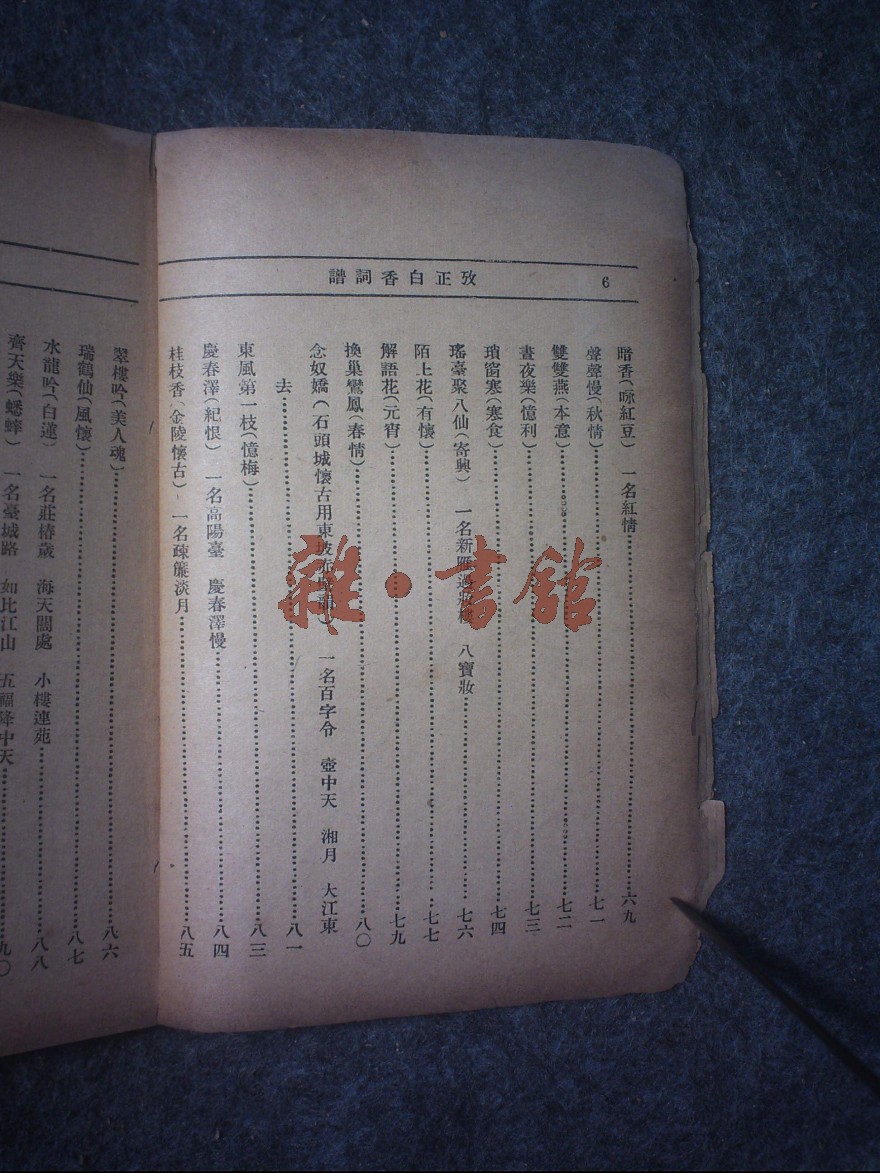 攷正白香詞譜 6
暗香(咏紅豆) 一名紅情……六九
聲聲慢(秋情)……七一
雙雙燕(本意)……七二
晝夜樂(憶利)……七三
瑣窗寒(寒食)……七四
瑤臺聚八仙(寄興) 一名新雁過妝樓 八寶妝……七六
陌上花(有懷)……七七
解語花(元宵)……七九
換巢鸞鳳(春情)……八〇
念奴嬌(石頭城懷古用東坡 一名百字令 壺中天 湘月 大江東
去……八一
東風第一枝(憶梅)……八三
慶春澤(紀恨) 一名高陽臺 慶春澤慢……八四
桂枝香(金陵懷古) 一名疎簾淡月……八五
翠樓吟(美人魂)……八六
瑞鶴仙(風懷)……八七
水龍吟(白蓮) 一名莊椿歲 海天闊處 小樓連苑……八八
齊天樂(蟋蟀) 一名臺城路 如比江山 五福降中天……九〇
雜·書館